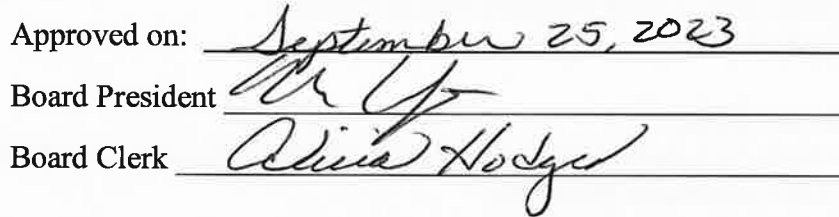 Approved on: September 25, 2023
Board President
Board Clerk Alicia Hodges